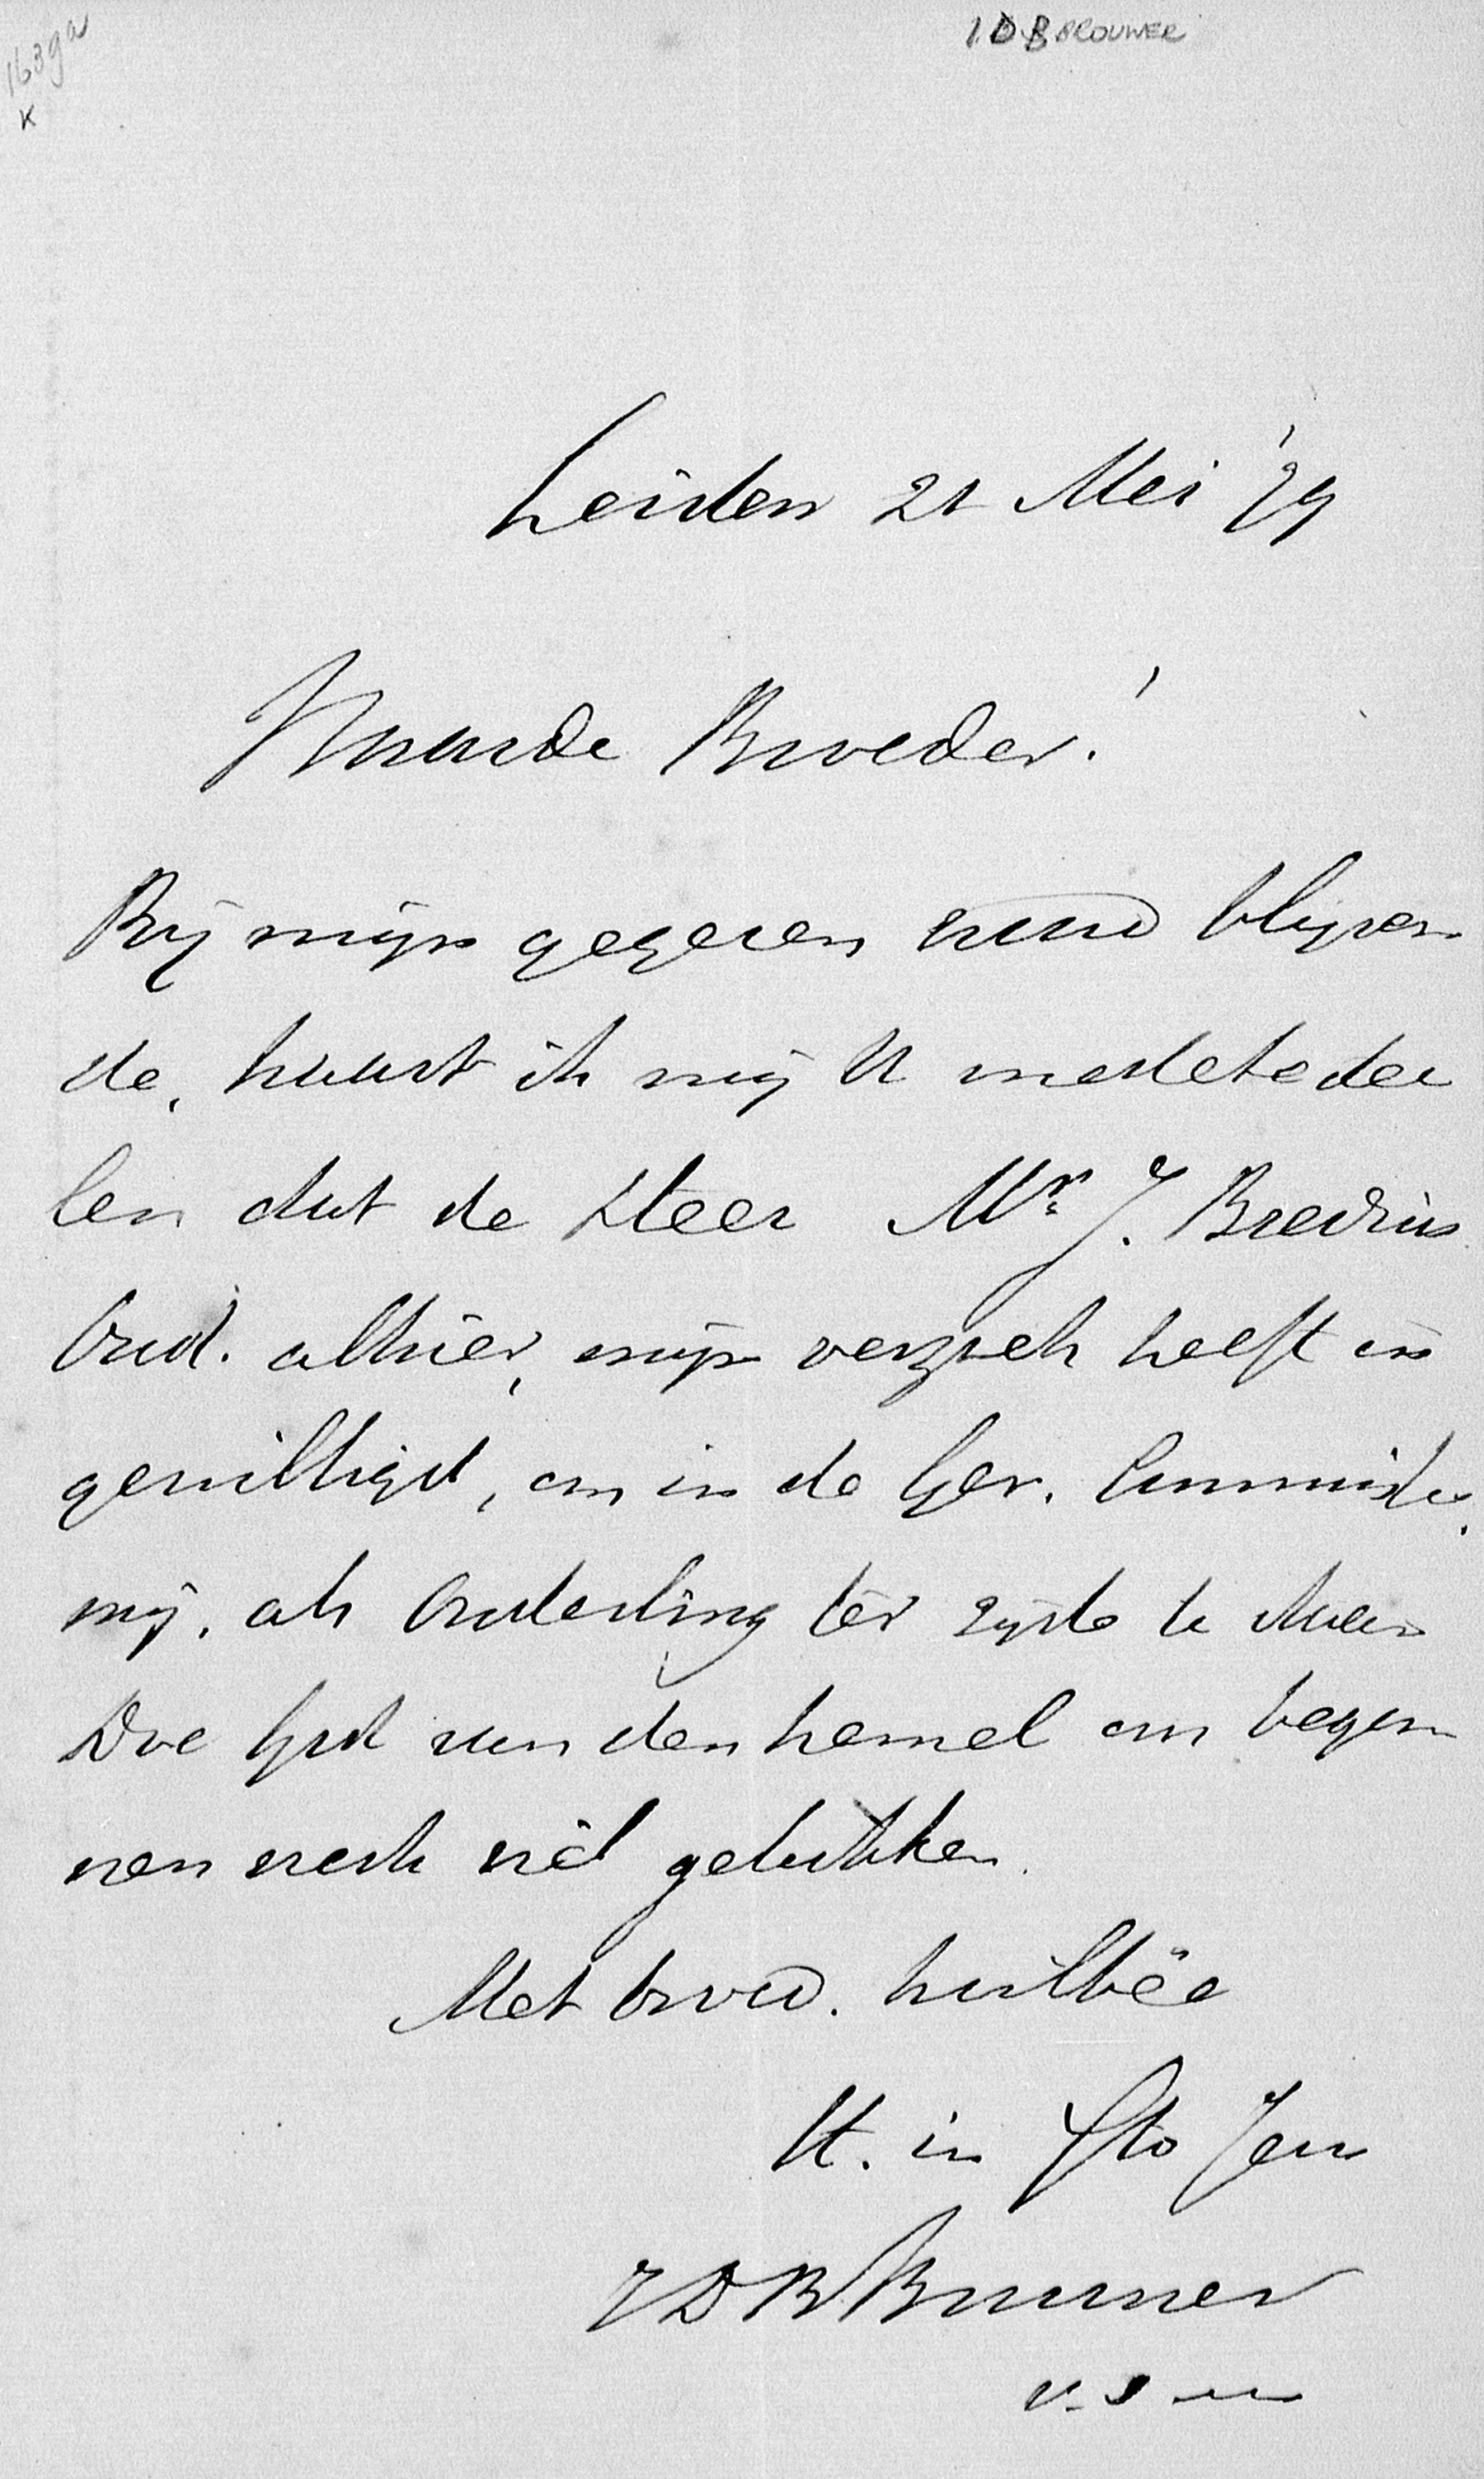 1639a
K
I.D.B BROUWER
Leiden 21 Mei '79
Waarde Broeder!
Bij mijn gegeven woord blijven
de, haast ik mij U medetedee
len dat de Heer Mr. J. Bredius
Oud. alhier, mijn verzoek heeft in
gewilligd, om in de Ger. Commissie,
mij, als Ouderling ter zijde te staan
Doe God van den hemel om begon
nen werk wèl gelukken.
Met broed. heilbêe
Uw. in Cto Jesu
JDB Brouwer